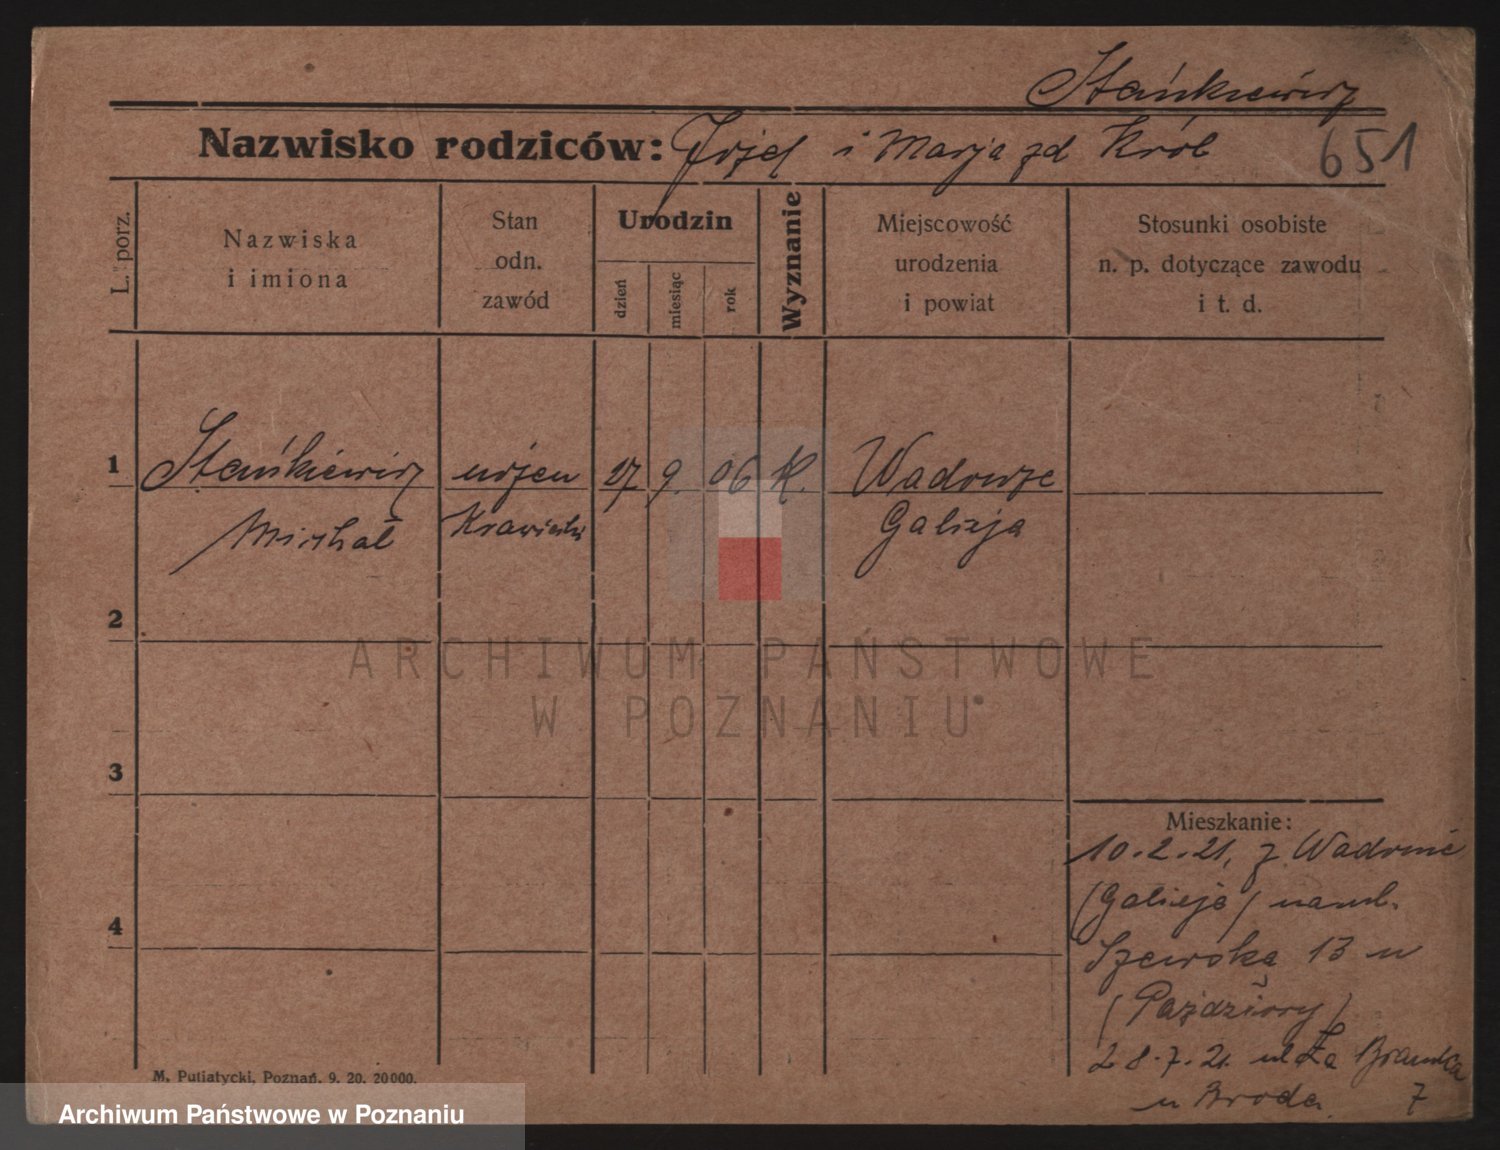 Stańkiewicz
Nazwisko rodziców: Józef i Marja zd Król
651
L. porz.
Nazwiska
i imiona
Stan
odn.
zawód
Urodzin
dzień
miesiąc
rok
Wyznanie
Miejscowość
urodzenia
i powiat
Stosunki osobiste
n. p. dotyczące zawodu
i t. d.
1 Stańkiewicz uczeń 27 9. 06 K. Wadowice
Michał Krawiecki Galicja
2
3
4
Mieszkanie:
10.2.21, z Wadowic
(Galicja)
Szewska 13 u
28.7.21. ul Za Bramką
u Broda 7
ARCHIWUM PAŃSTWOWE
W POZNANIU
M. Putiatycki, Poznań, 9. 20. 20000.
Archiwum Państwowe w Poznaniu